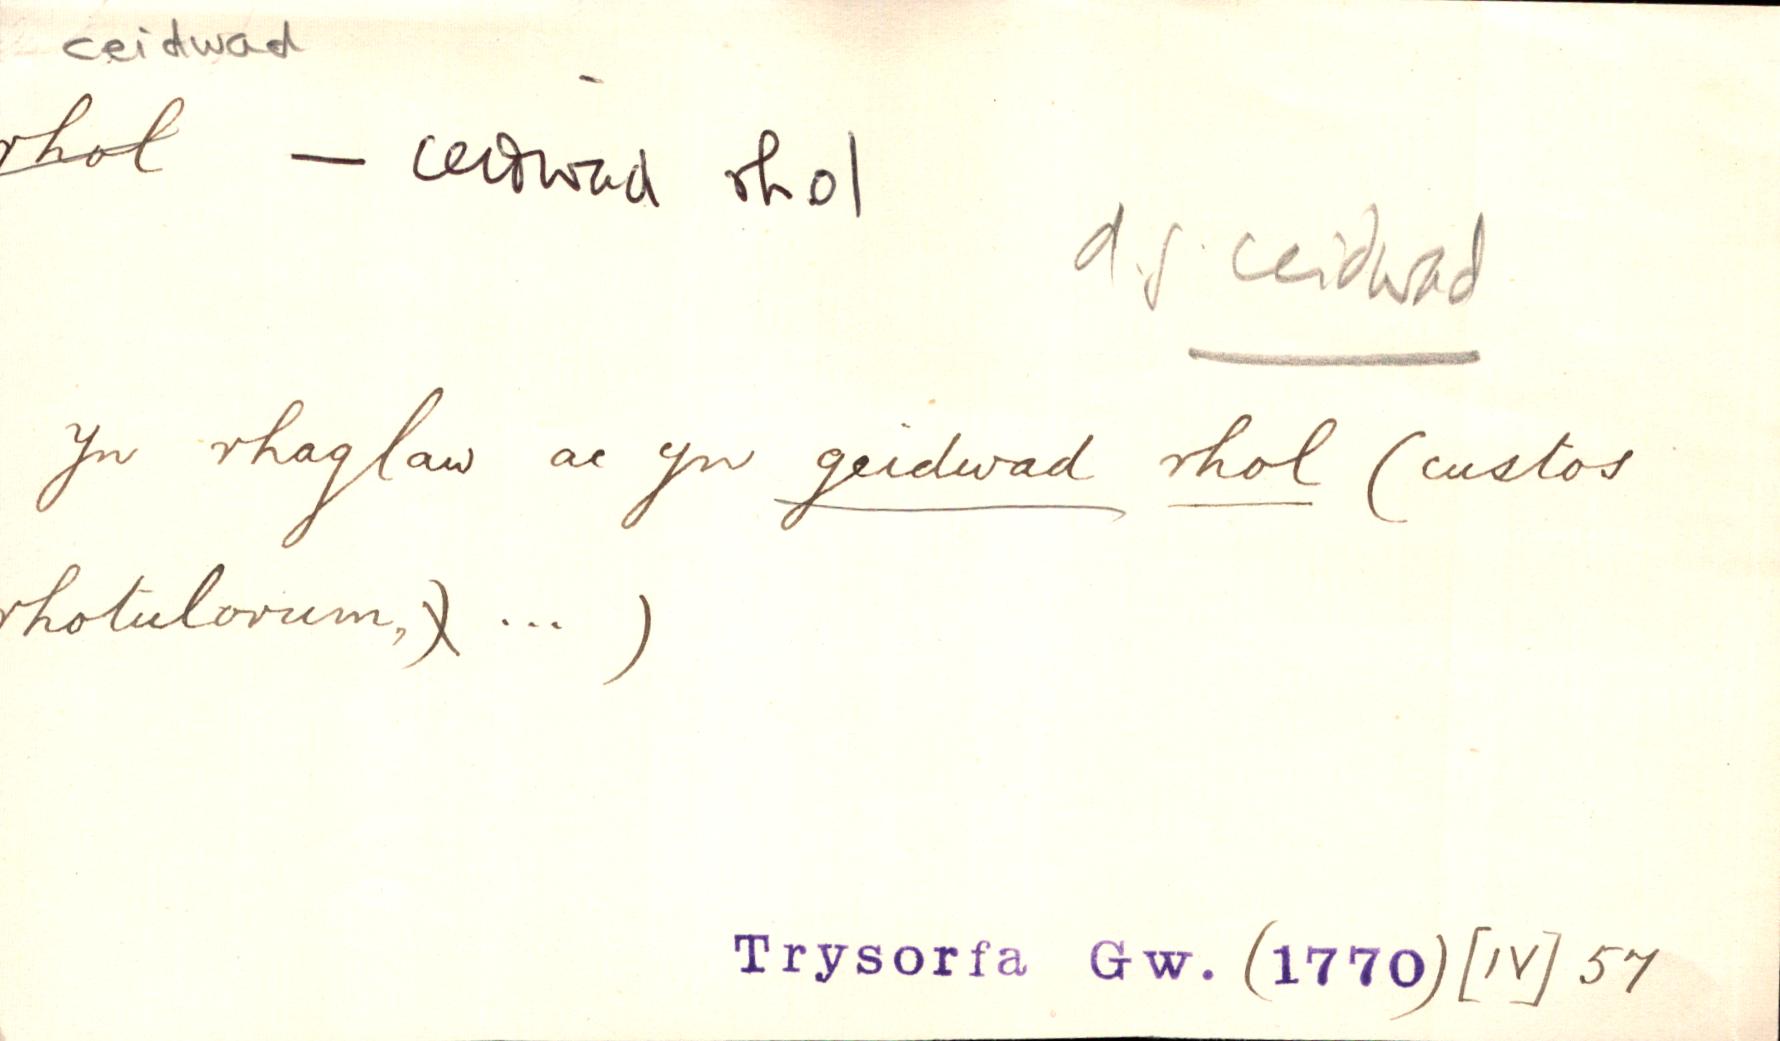 ceidwad
rhol — ceidwad rhol
d.g. ceidwad
Yn rhaglaw ac yn geidwad rhol (custos
rhotulorum,) ... )
Trysorfa Gw. (1770) [IV] 57